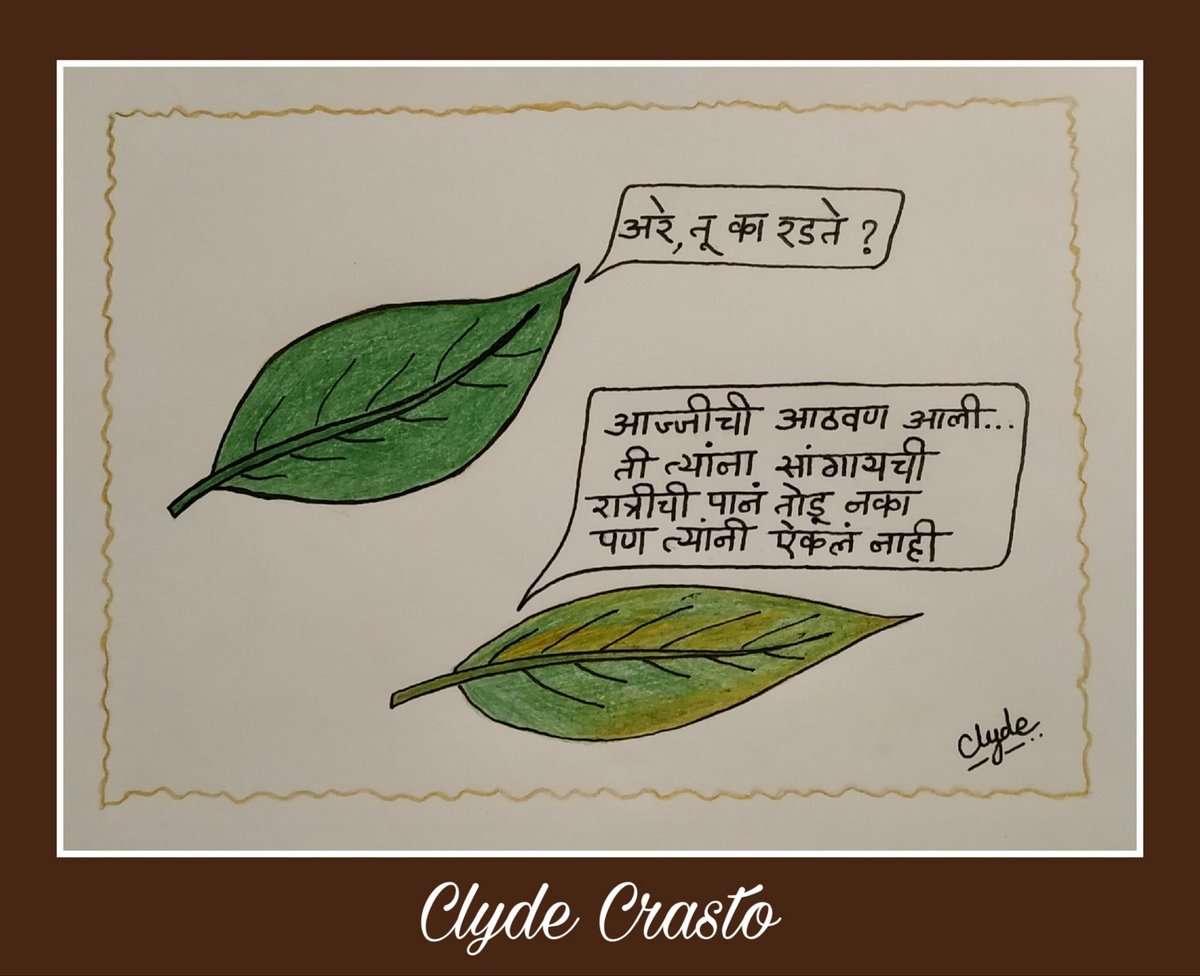 अरे, तू का रडते ?
आज्जीची आठवण आली...
ती त्यांना सांगायची
रात्रीची पानं तोडू नका
पण त्यांनी ऐकलं नाही
Clyde
Clyde Crasto